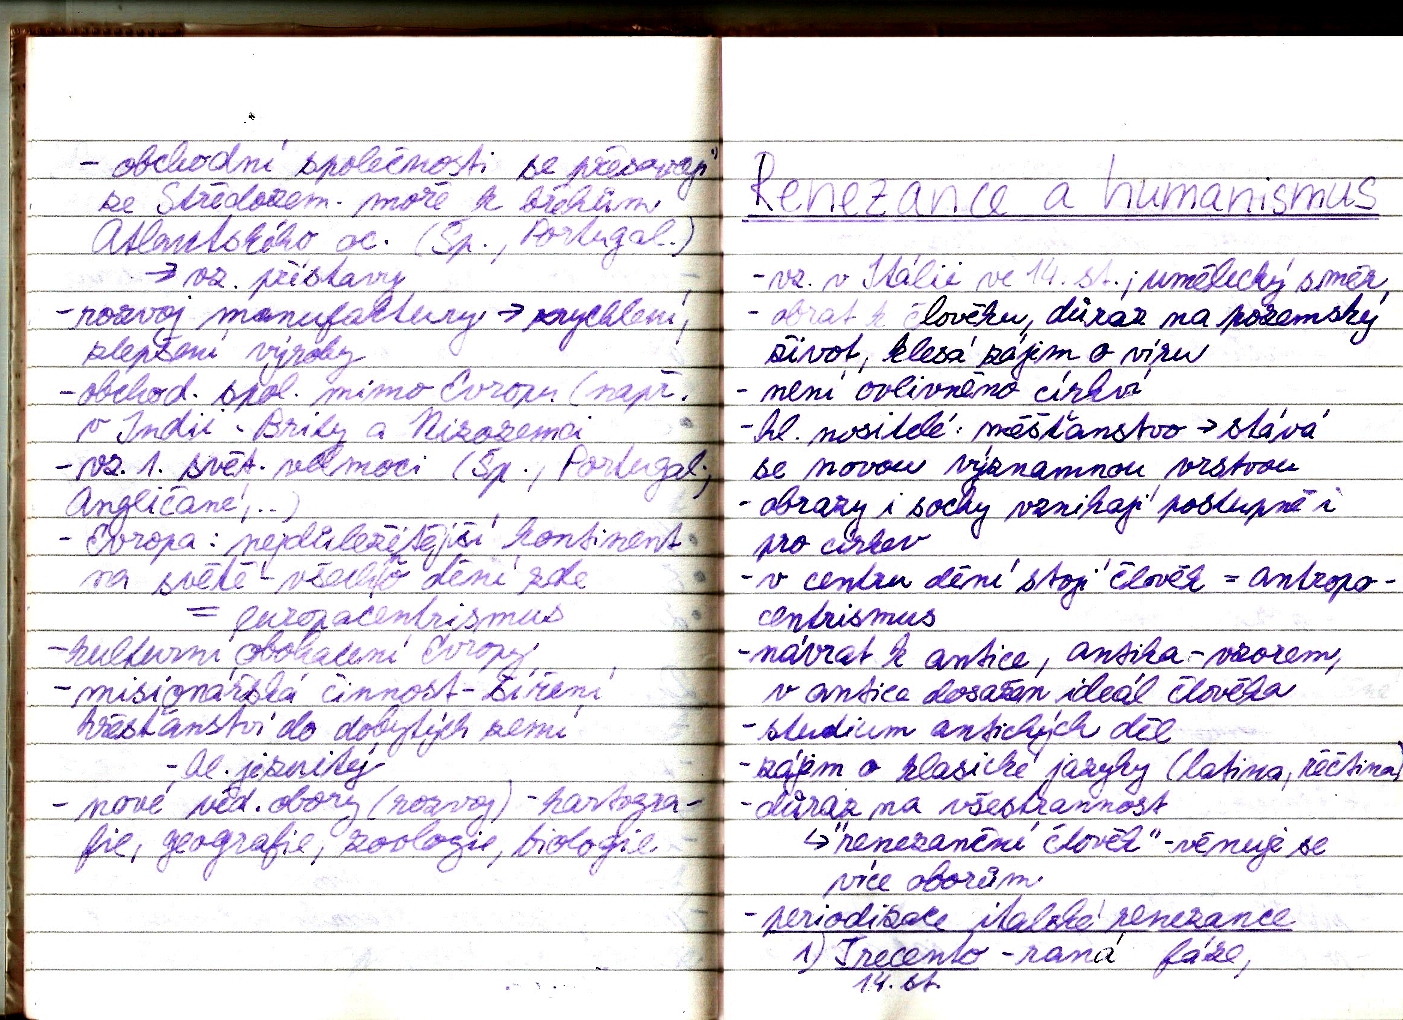 - obchodní společnosti se přesouvají
ze Středozem. moře k břehům
Atlantského oc. (Šp., Portugal.)
→ vz. přístavy
- rozvoj manufaktury → zrychlení,
zlepšení výroby
- obchod. spol. mimo Evropu (např.
v Indii - Brity a Nizozemci
- vz. 1. svět. velmoci (Šp., Portugal.,
Angličané, ..)
- Evropa: nejdůležitější kontinent
na světě - všechno dění zde
= europacentrismus
- kulturní obohacení Evropy
- misionářská činnost - šíření
křesťanství do dobytých zemí
- hl. jezuité
- nové věd. obory (rozvoj) - kartogra-
fie, geografie, zoologie, biologie
Renezance a humanismus
- vz. v Itálii ve 14. st.; umělecký směr
- obrat k člověku, důraz na pozemský
život, klesá zájem o víru
- není ovlivněno církví
- hl. nositelé: měšťanstvo → stává
se novou významnou vrstvou
- obrazy i sochy vznikají postupně i
pro církev
- v centru dění stojí člověk = antropo-
centrismus
- návrat k antice, antika - vzorem,
v antice dosažen ideál člověka
- studium antických děl
- zájem o klasické jazyky (latina, řečtina)
- důraz na všestrannost
↳ "renezanční člověk" - věnuje se
více oborům
- periodizace italské renezance
1) Trecento - raná fáze,
14. st.